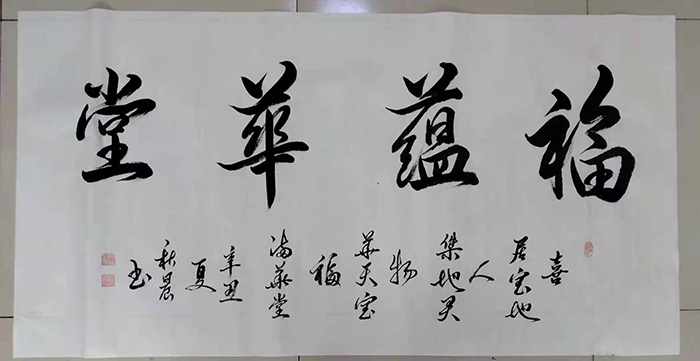 福蕴華堂
喜
居宝地
人
傑地灵
物
華天宝
福
满華堂
辛丑
夏
秋晨
书